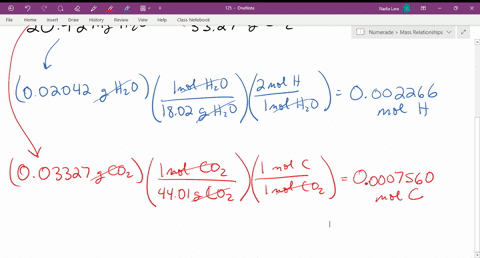 125 - OneNote
Nadia Lara
File Home Insert Draw View Help Class Notebook
Numerade > Mass Relationships
(0.02042 g H2O) (1 mol H2O / 18.02 g H2O) (2 mol H / 1 mol H2O) = 0.002266 mol H
(0.03327 g CO2) (1 mol CO2 / 44.01 g CO2) (1 mol C / 1 mol CO2) = 0.0007560 mol C